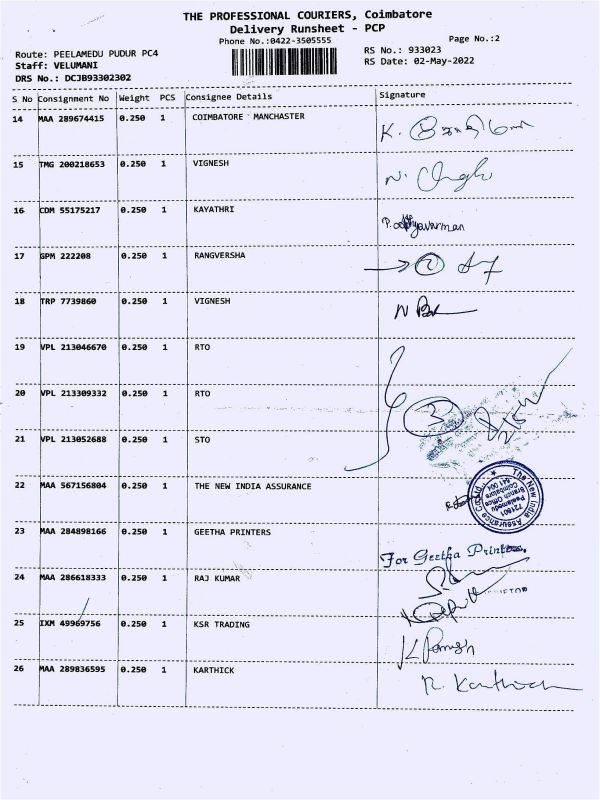 THE PROFESSIONAL COURIERS, Coimbatore
Delivery Runsheet - PCP
Phone No.:0422-3505555
Page No.:2
Route: PEELAMEDU PUDUR PC4
RS No.: 933023
Staff: VELUMANI
RS Date: 02-May-2022
DRS No.: DCJB93302302
S No Consignment No Weight PCS Consignee Details Signature
14 MAA 289674415 0.250 1 COIMBATORE MANCHASTER K.
15 TMG 200218653 0.250 1 VIGNESH N.
16 CDM 55175217 0.250 1 KAYATHRI
17 GPM 222208 0.250 1 RANGVERSHA 2
18 TRP 7739860 0.250 1 VIGNESH N
19 VPL 213046670 0.250 1 RTO
20 VPL 213309332 0.250 1 RTO 3
21 VPL 213052688 0.250 1 STO
22 MAA 567156804 0.250 1 THE NEW INDIA ASSURANCE
The New India Assurance Co. Ltd.
721801
Peelamedu
Branch Office
Coimbatore
641 004
23 MAA 284898166 0.250 1 GEETHA PRINTERS For Geetha Printers,
24 MAA 286618333 0.250 1 RAJ KUMAR
25 IXM 49969756 0.250 1 KSR TRADING
26 MAA 289836595 0.250 1 KARTHICK R. Karthick